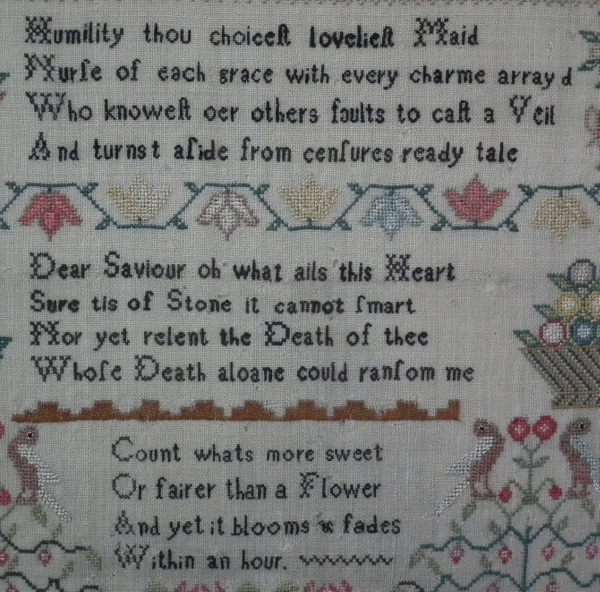 Humility thou choiceſt lovelieſt Maid
Nurſe of each grace with every charme array d
Who knoweſt oer others faults to caſt a Veil
And turnst aſide from cenſures ready tale
Dear Saviour oh what ails this Heart
Sure tis of Stone it cannot ſmart
Nor yet relent the Death of thee
Whoſe Death aloane could ranſom me
Count whats more sweet
Or fairer than a Flower
And yet it blooms & fades
Within an hour.